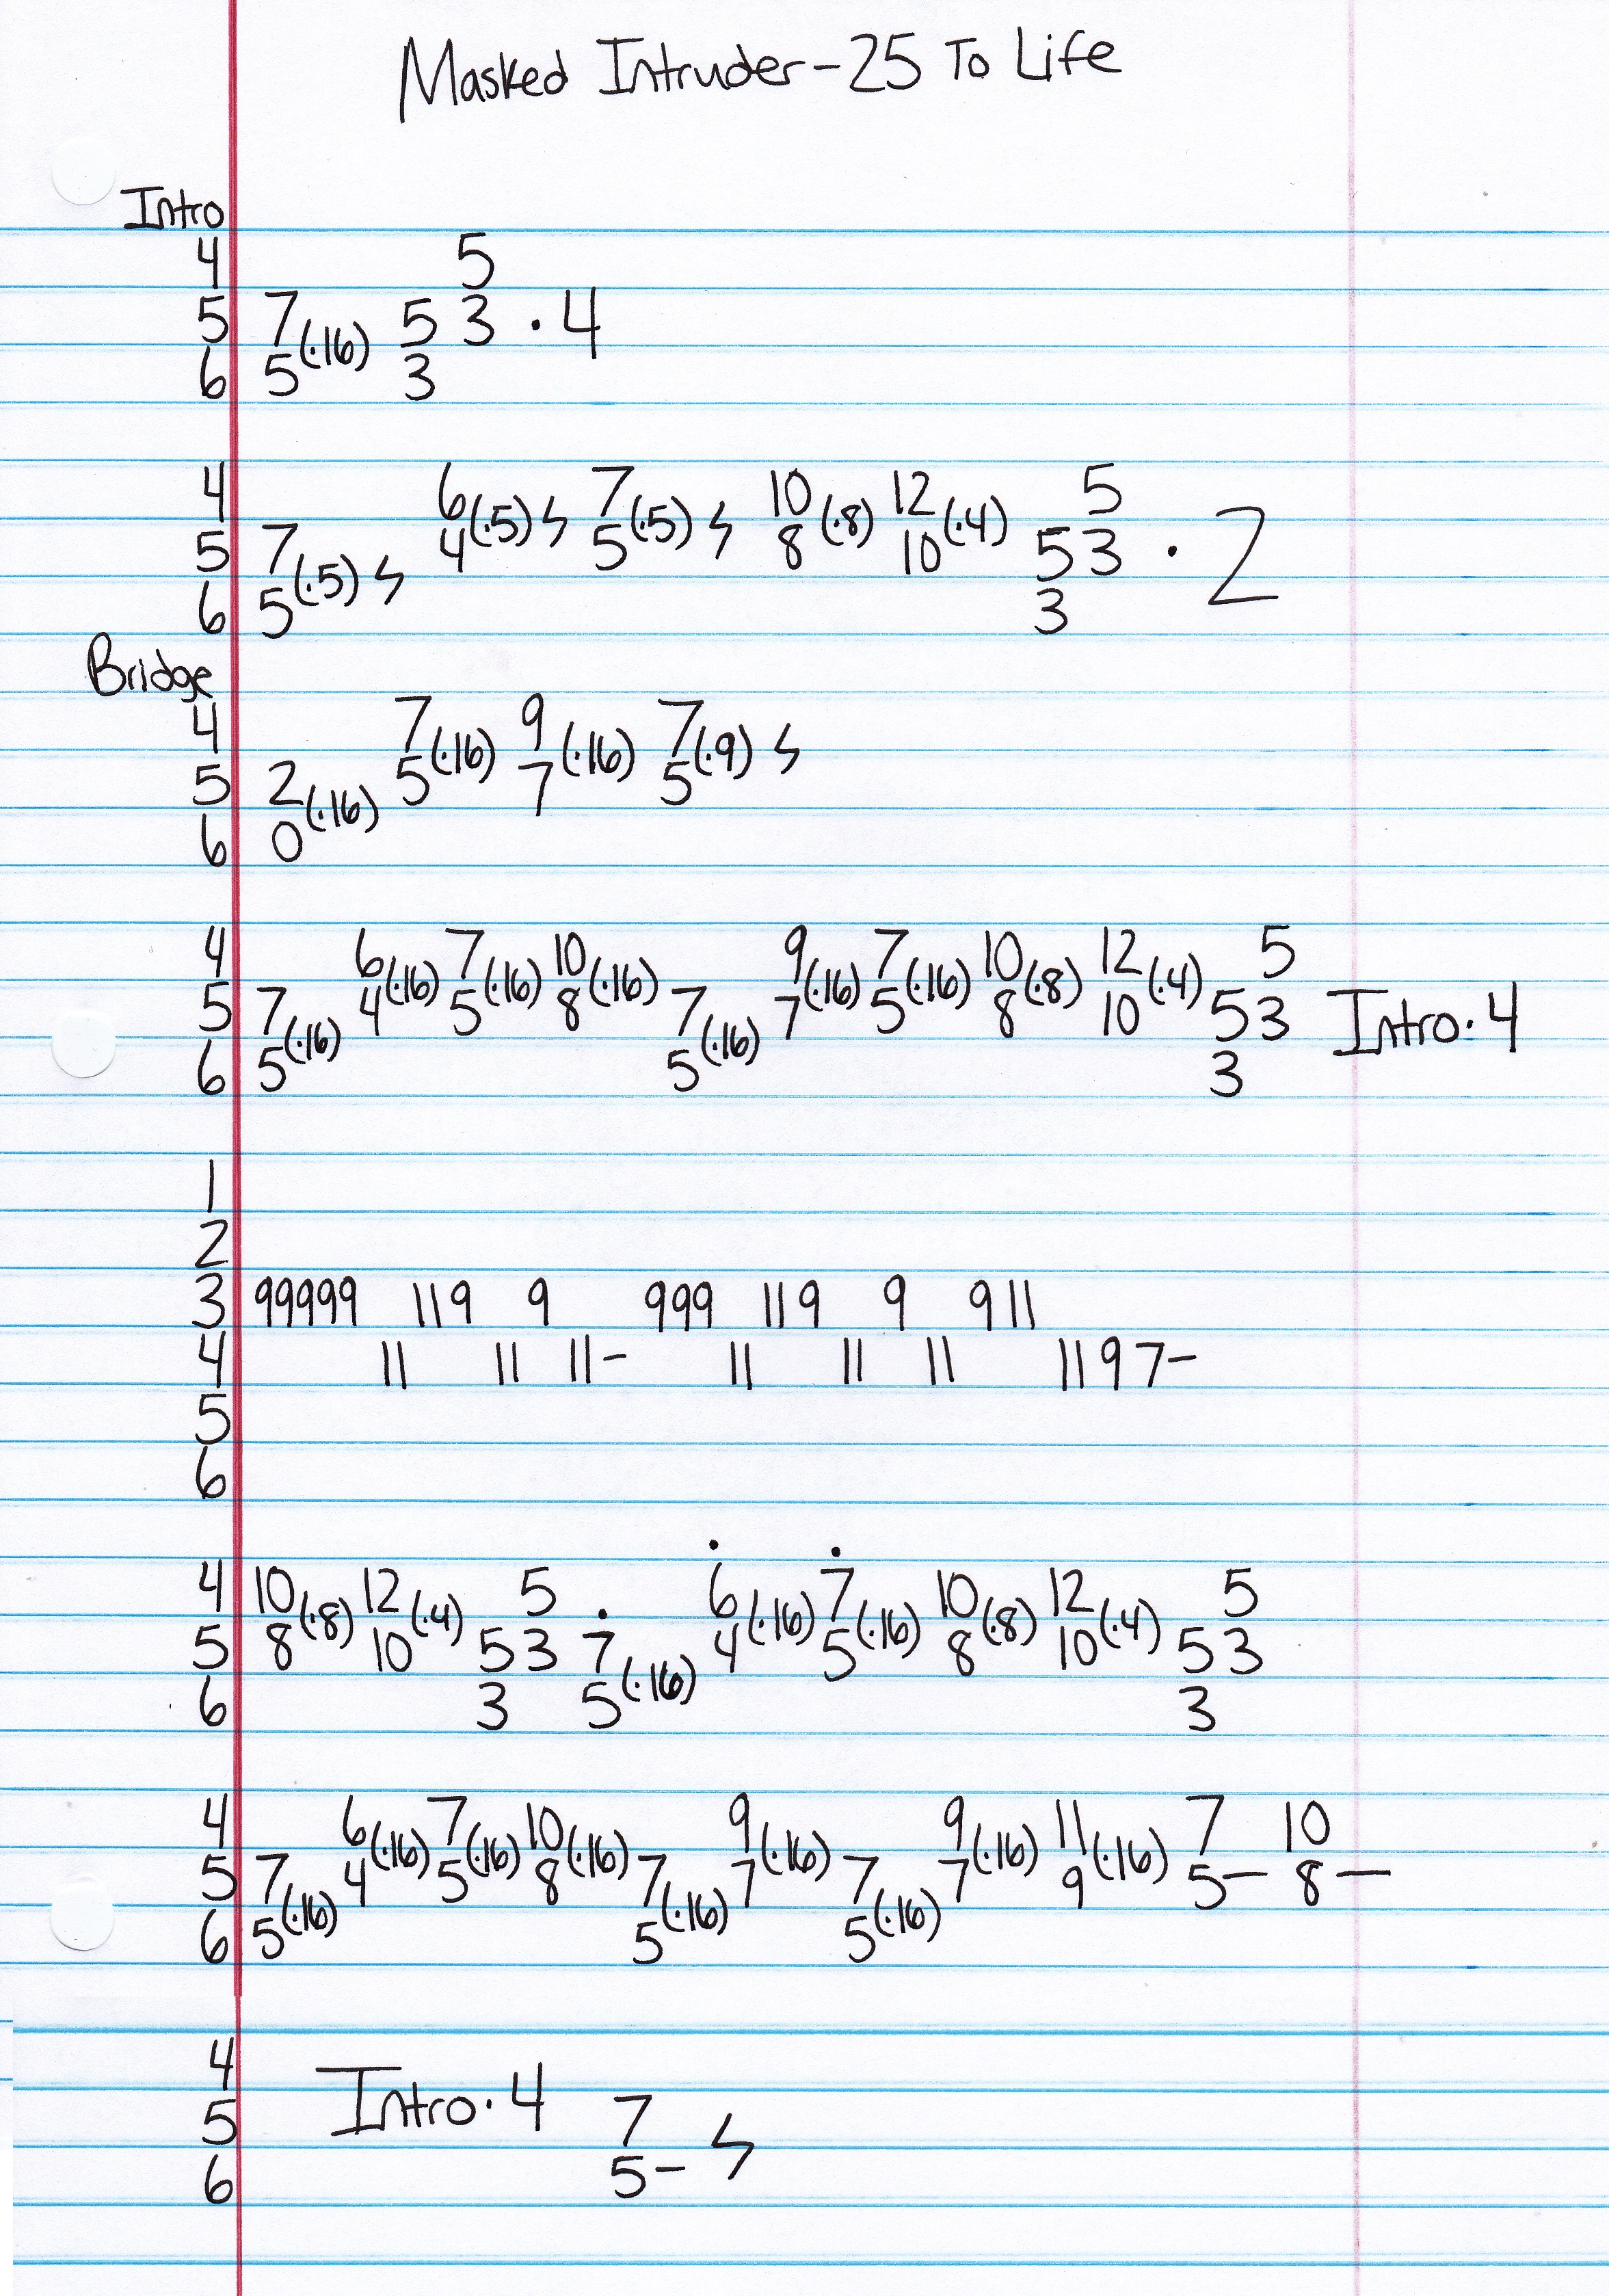 Masked Intruder-25 To Life
Intro
4 5
5 7(·16) 5 3 · 4
6 5 3
4 6(·5)ϟ 7(·5)ϟ 10(·8) 12(·4) 5
5 7(·5)ϟ 4 5 8 10 5 3 · 2
6 5 3
Bridge
4 7(·16) 9(·16) 7(·9)ϟ
5 2(·16) 5 7 5
6 0
4 6(·16) 7(·16) 10(·16) 9(·16) 7(·16) 10(·8) 12(·4) 5
5 7(·16) 4 5 8 7(·16) 7 5 8 10 5 3 Intro·4
6 5 5 3
1
2
3 99999 119 9 999 119 9 911
4 11 11 11- 11 11 11 1197-
5
6
4 10(·8) 12(·4) 5 · 6(·16) 7(·16) 10(·8) 12(·4) 5
5 8 10 5 3 7(·16) 4 5 8 10 5 3
6 3 5 3
4 6(·16) 7(·16) 10(·16) 9(·16) 9(·16) 11(·16) 7 10
5 7(·16) 4 5 8 7(·16) 7 7(·16) 7 9 5- 8-
6 5 5 5
4
5 Intro·4 7 ϟ
6 5-